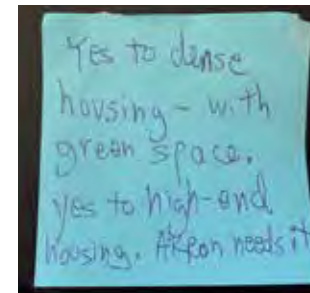 Yes to dense
housing - with
green space.
yes to high-end
housing. Akron needs it